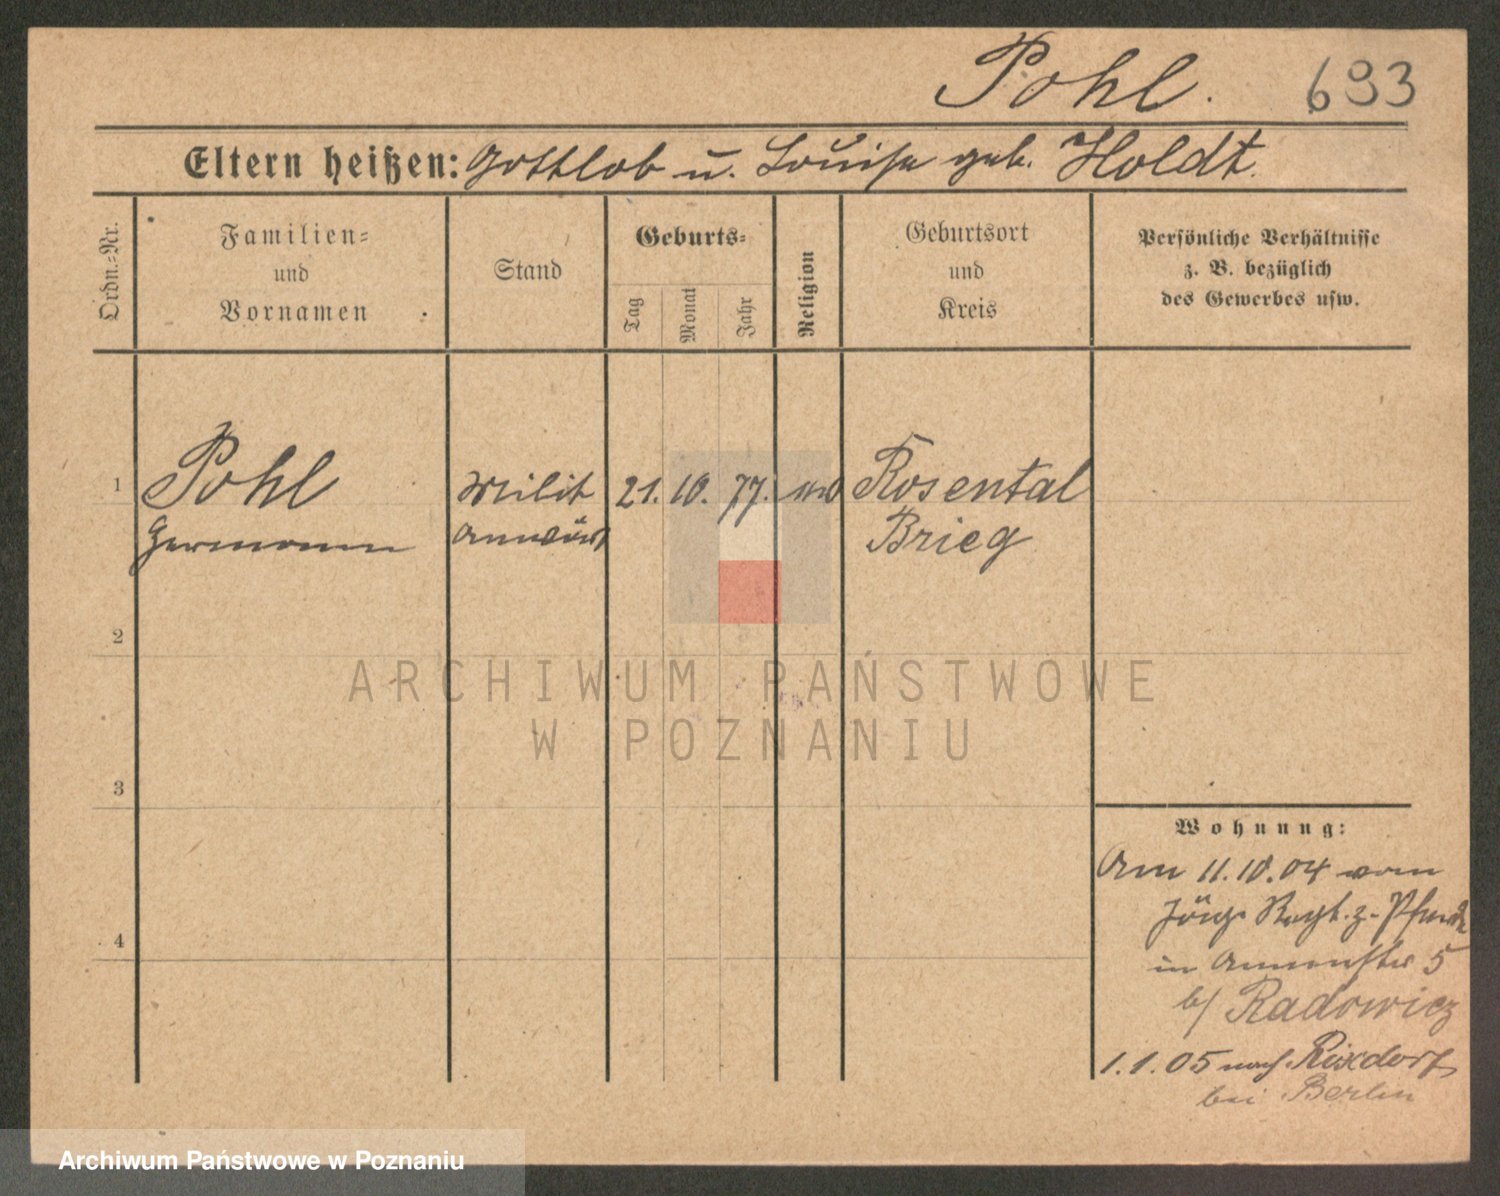 Pohl. 693
Eltern heißen: Gottlob u. Louise geb. Holdt.
Ordn.-Nr.
Familien-
und
Vornamen
Stand
Geburts-
Tag
Monat
Jahr
Religion
Geburtsort
und
Kreis
Persönliche Verhältnisse
z. B. bezüglich
des Gewerbes usw.
1 Pohl Milit 21. 10. 77. Rosental
Hermann Anwärt Brieg
2
3
4
ARCHIWUM PAŃSTWOWE
W POZNANIU
Wohnung:
Am 11.10.04 vom
Jäg. Regt. z. Pferde
in 5
b/ Radowicz
1.1.05 nach Rixdorf
bei Berlin
Archiwum Państwowe w Poznaniu